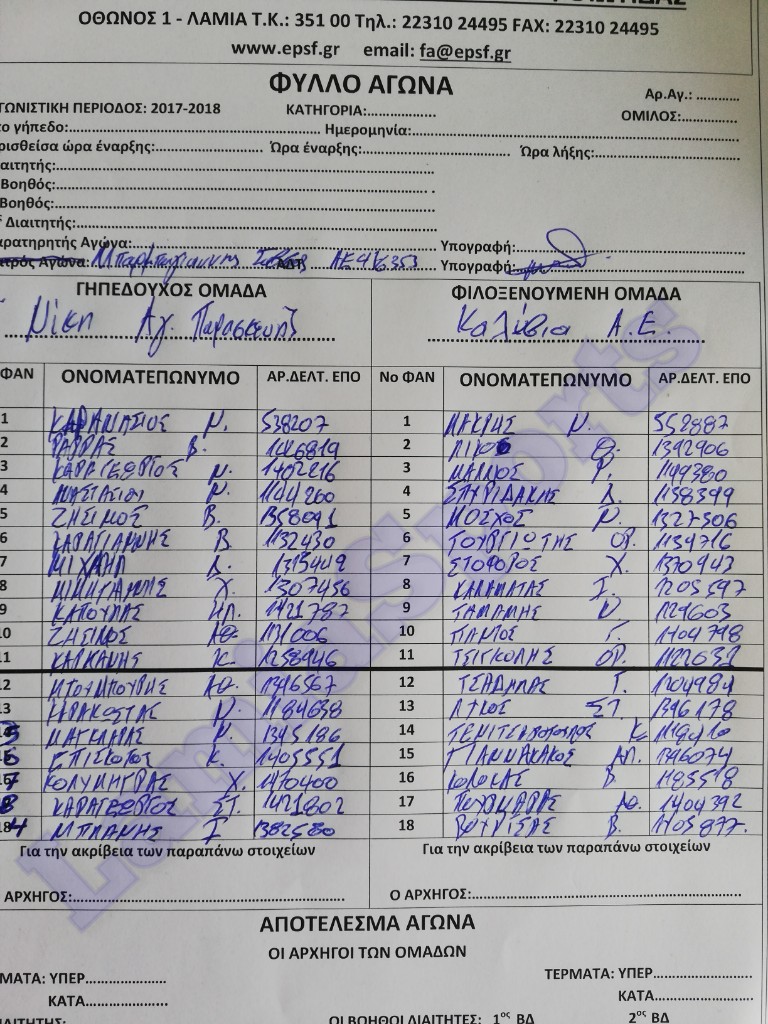 ΟΘΩΝΟΣ 1 - ΛΑΜΙΑ Τ.Κ.: 351 00 Τηλ.: 22310 24495 FAX: 22310 24495
www.epsf.gr email: fa@epsf.gr
ΦΥΛΛΟ ΑΓΩΝΑ
Αρ.Αγ.: ............
ΓΩΝΙΣΤΙΚΗ ΠΕΡΙΟΔΟΣ: 2017-2018 ΚΑΤΗΓΟΡΙΑ:.................. ΟΜΙΛΟΣ:...............
το γήπεδο:.................... Ημερομηνία:....................
ρισθείσα ώρα έναρξης:.................... Ώρα έναρξης:.................... Ώρα λήξης:....................
αιτητής:....................
Βοηθός:....................
Βοηθός:....................
Διαιτητής:....................
αρατηρητής Αγώνα:.................... Υπογραφή:....................
ατρός Αγώνα: Μπαρμπαγιαννης ΑΔΤ ΑΕ416353 Υπογραφή:
ΓΗΠΕΔΟΥΧΟΣ ΟΜΑΔΑ ΦΙΛΟΞΕΝΟΥΜΕΝΗ ΟΜΑΔΑ
Νίκη Αγ. Παρασκευής Καλύβια Α.Ε.
ΦΑΝ ΟΝΟΜΑΤΕΠΩΝΥΜΟ ΑΡ.ΔΕΛΤ. ΕΠΟ Νο ΦΑΝ ΟΝΟΜΑΤΕΠΩΝΥΜΟ ΑΡ.ΔΕΛΤ. ΕΠΟ
1 ΚΑΡΑΝΑΣΙΟΣ Ν. 538207 1 ΜΑΚΡΗΣ Ν. 552887
2 ΡΑΠΡΑΣ Β. 1126819 2 ΛΙΚΟ Θ. 1342906
3 ΚΑΡΑΓΕΩΡΓΟΣ Ν. 1402216 3 1199380
4 Ν. 1144260 4 ΣΠΥΡΙΔΑΚΗΣ Δ. 1158399
5 ΖΗΣΙΜΟΣ Β. 1358091 5 ΜΟΣΧΟΣ Ν. 1327506
6 ΚΑΡΑΓΙΑΝΝΗΣ Β. 1132430 6 ΤΟΥΡΓΙΩΤΗΣ 1134716
7 ΜΙΧΑΗΛ Δ. 1315449 7 ΣΤΟΦΟΡΟΣ Χ. 1370943
8 Χ. 1307456 8 Ι. 1205597
9 ΚΑΠΟΥΛΑΣ ΗΛ. 1421787 9 Ν. 1129603
10 ΖΗΣΙΜΟΣ ΑΘ. 1131006 10 Γ. 1404798
11 Κ. 1258946 11 ΤΣΙΓΚΟΛΗΣ 1122631
12 ΜΠΟΥΜΠΟΥΡΗΣ ΑΘ. 1346567 12 Γ. 1204984
13 Ν. 1184638 13 ΛΥΚΟΣ ΣΤ. 1346178
Ν. 1345186 14 Κ.
Κ. 1405551 15 ΓΙΑΝΝΑΚΑΚΟΣ ΑΠ. 1346074
ΚΟΛΥΜΗΓΡΑΣ Χ. 1410400 16 Β 1185518
ΚΑΡΑΓΕΩΡΓΟΣ ΣΤ. 1421802 17 ΑΘ. 1404392
ΜΠΛΑΝΗΣ Γ 1382580 18 ΒΟΥΛΤΣΑΣ Β. 1105877.
Για την ακρίβεια των παραπάνω στοιχείων Για την ακρίβεια των παραπάνω στοιχείων
ΑΡΧΗΓΟΣ:.................... Ο ΑΡΧΗΓΟΣ:....................
ΑΠΟΤΕΛΕΣΜΑ ΑΓΩΝΑ
ΟΙ ΑΡΧΗΓΟΙ ΤΩΝ ΟΜΑΔΩΝ
ΜΑΤΑ: ΥΠΕΡ.................... ΤΕΡΜΑΤΑ: ΥΠΕΡ....................
ΚΑΤΑ.................... ΚΑΤΑ....................
ΙΑΙΤΗΤΗΣ: ΟΙ ΒΟΗΘΟΙ ΔΙΑΙΤΗΤΕΣ: 1ος ΒΔ 2ος ΒΔ
LamiaSports